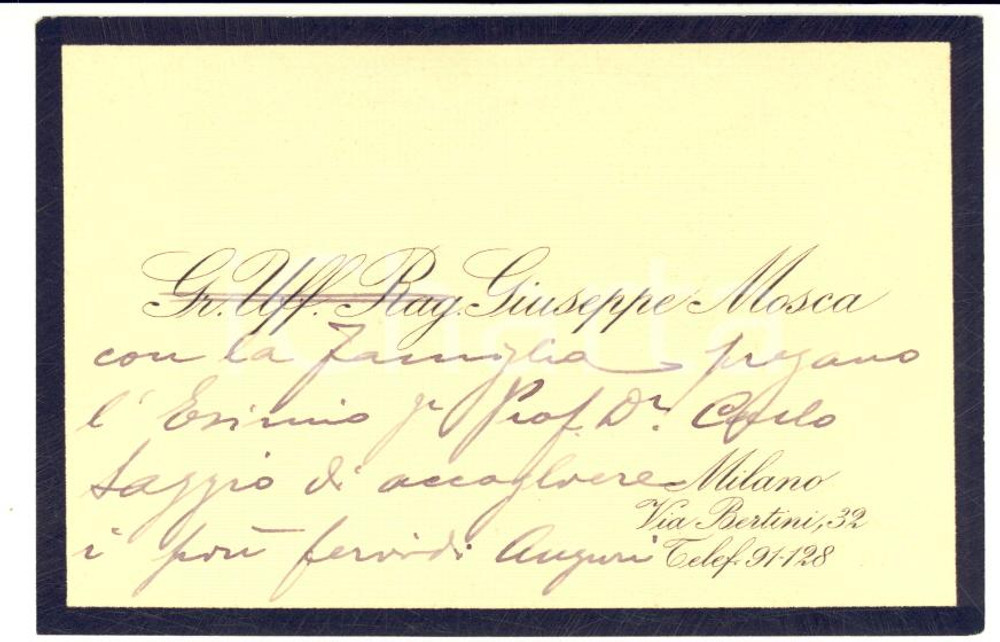 Gr. Uff. Rag. Giuseppe Mosca
con la famiglia pregano
l'Esimio Prof. Dr. Carlo
Saggio di accogliere
i più fervidi Auguri
Milano
Via Bertini, 32
Telef. 91-128